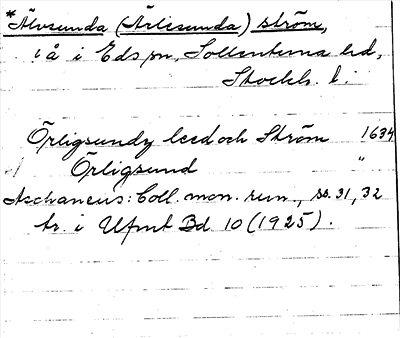 *Älvsunda (Ärlesunda) ström,
i å i Eds sn, Sollentuna hd,
Stockh. l.
Örligsundz leed och Ström 1634
Örligsund "
Aschaneus: Coll. mon. run., ss. 31, 32
tr. i Ufmt Bd 10 (1925).